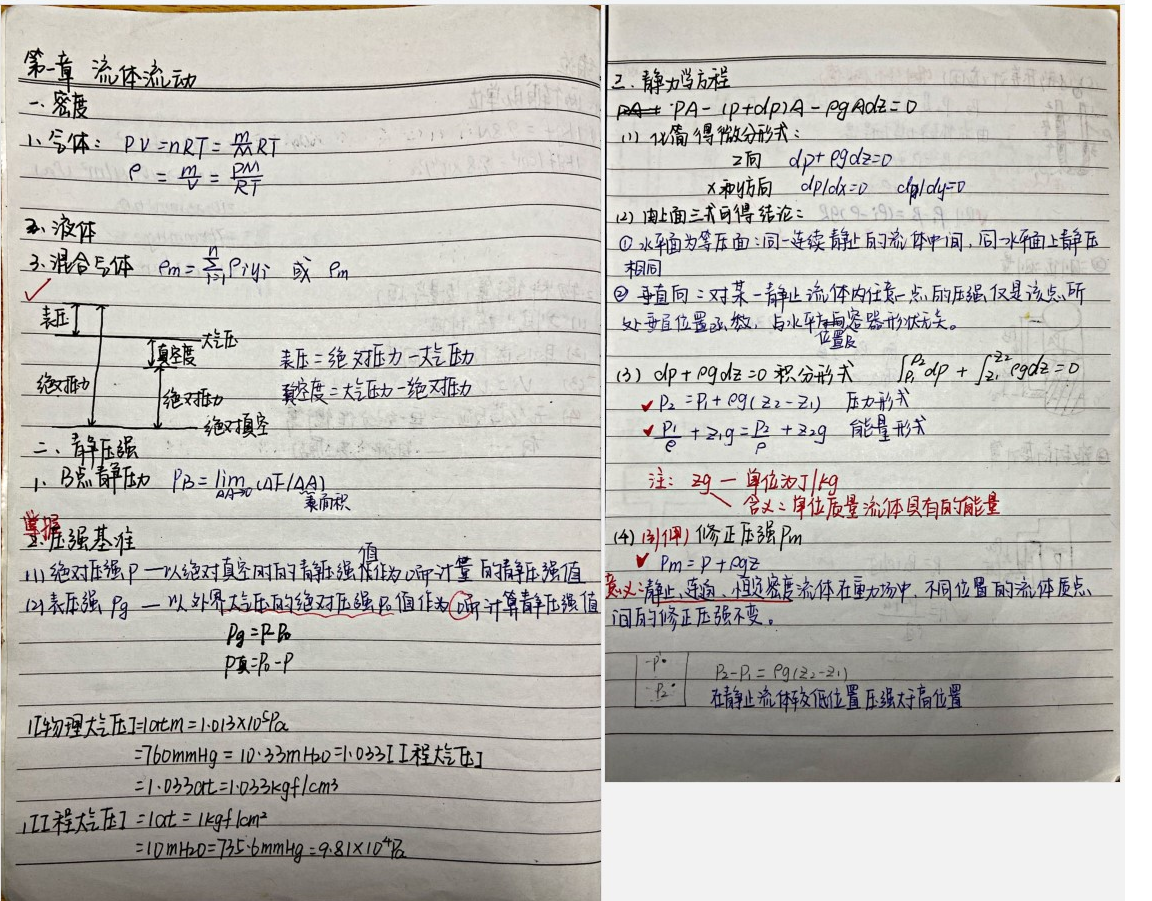 第一章 流体流动
一、密度
1、气体： PV=nRT=m/M RT
ρ = m/V = PM/RT
2、液体
3、混合气体 ρm=∑(i=1→n) ρiyi 或 ρm
✓
表压
大气压
真空度
表压=绝对压力-大气压力
绝对压力
真空度=大气压力-绝对压力
绝对压力
绝对真空
二、静压强
1、B点静压力 PB=lim(ΔA→0)(ΔF/ΔA)
表面积
掌握
2、压强基准
值
(1) 绝对压强P—以绝对真空时的静压强作为0而计量的静压强值
(2) 表压强Pg—以外界大气压的绝对压强P0值作为0而计算静压强值
Pg=P-P0
P真=P0-P
1[物理大气压]=1atm=1.013×10⁵Pa
=760mmHg=10.33mH2O=1.033[工程大气压]
=1.033at=1.033kgf/cm³
1[工程大气压]=1at=1kgf/cm²
=10mH2O=735.6mmHg=9.81×10⁴Pa
三、静力学方程
PA-(P+dp)A-ρgAdz=0
(1) 化简得微分形式：
Z向 dp+ρgdz=0
x和y方向 dp/dx=0 dp/dy=0
(2) 由上面三式可得结论：
① 水平面为等压面：同一连续静止的流体中间，同一水平面上静压
相同
② 垂直向：对某一静止流体内任意一点的压强仅是该点所
处垂直位置函数，与水平位置及容器形状无关。
(3) dp+ρgdz=0 积分形式 ∫(P1→P2)dp+∫(Z1→Z2)ρgdz=0
✓ P2=P1+ρg(Z2-Z1) 压力形式
✓ P1/ρ+Z1g=P2/ρ+Z2g 能量形式
注： zg—单位为J/kg
含义：单位质量流体具有的能量
(4) 引(伸) 修正压强Pm
✓ Pm=P+ρgz
意义：静止、连通、恒定密度流体在重力场中，不同位置的流体质点
间的修正压强不变。
-P1·
-P2·
P2-P1=ρg(Z2-Z1)
在静止流体较低位置压强大于高位置